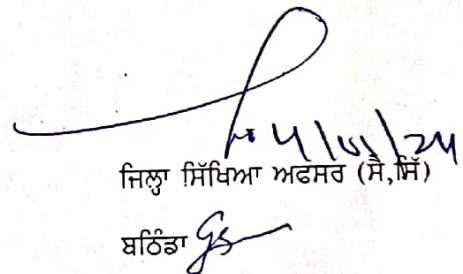 4/01/24
ਜਿਲ੍ਹਾ ਸਿੱਖਿਆ ਅਫਸਰ (ਸੈ,ਸਿੱ)
ਬਠਿੰਡਾ